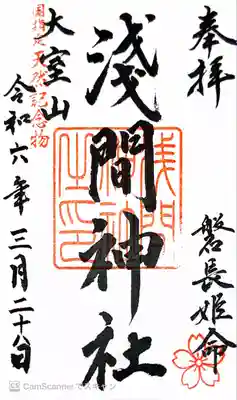 奉拝
磐長姫命
浅間神社
国指定天然記念物
大室山
令和六年三月二十八日
CS CamScannerでスキャン